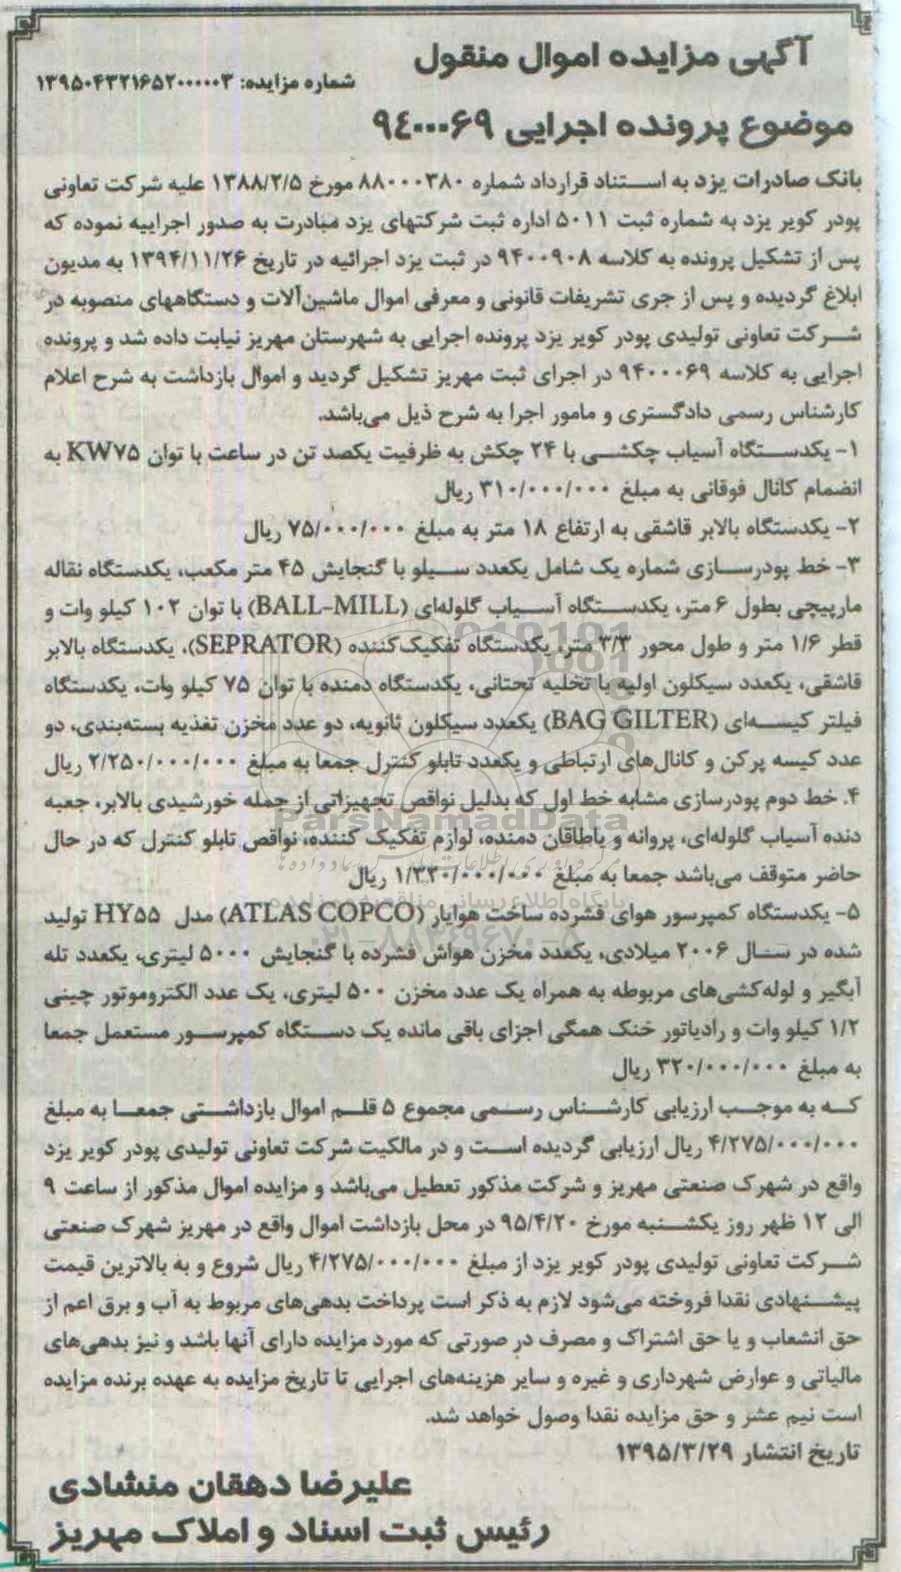 آگهی مزایده اموال منقول
شماره مزایده: ۱۳۹۵۰۴۳۲۱۶۵۲۰۰۰۰۰۳
موضوع پرونده اجرایی ۹۴۰۰۰۶۹
بانک صادرات یزد به استناد قرارداد شماره ۸۸۰۰۰۳۸۰ مورخ ۱۳۸۸/۲/۵ علیه شرکت تعاونی
پودر کویر یزد به شماره ثبت ۵۰۱۱ اداره ثبت شرکتهای یزد مبادرت به صدور اجراییه نموده که
پس از تشکیل پرونده به کلاسه ۹۴۰۰۹۰۸ در ثبت یزد اجرائیه در تاریخ ۱۳۹۴/۱۱/۲۶ به مدیون
ابلاغ گردیده و پس از جری تشریفات قانونی و معرفی اموال ماشین‌آلات و دستگاههای منصوبه در
شرکت تعاونی تولیدی پودر کویر یزد پرونده اجرایی به شهرستان مهریز نیابت داده شد و پرونده
اجرایی به کلاسه ۹۴۰۰۰۶۹ در اجرای ثبت مهریز تشکیل گردید و اموال بازداشت به شرح اعلام
کارشناس رسمی دادگستری و مامور اجرا به شرح ذیل می‌باشد.
۱- یکدستگاه آسیاب چکشی با ۲۴ چکش به ظرفیت یکصد تن در ساعت با توان KW۷۵ به
انضمام کانال فوقانی به مبلغ ۳۱۰/۰۰۰/۰۰۰ ریال
۲- یکدستگاه بالابر قاشقی به ارتفاع ۱۸ متر به مبلغ ۷۵/۰۰۰/۰۰۰ ریال
۳- خط پودرسازی شماره یک شامل یکعدد سیلو با گنجایش ۴۵ متر مکعب، یکدستگاه نقاله
مارپیچی بطول ۶ متر، یکدستگاه آسیاب گلوله‌ای (BALL-MILL) با توان ۱۰۲ کیلو وات و
قطر ۱/۶ متر و طول محور ۳/۳ متر، یکدستگاه تفکیک‌کننده (SEPRATOR)، یکدستگاه بالابر
قاشقی، یکعدد سیکلون اولیه با تخلیه تحتانی، یکدستگاه دمنده با توان ۷۵ کیلو وات، یکدستگاه
فیلتر کیسه‌ای (BAG GILTER) یکعدد سیکلون ثانویه، دو عدد مخزن تغذیه بسته‌بندی، دو
عدد کیسه پرکن و کانال‌های ارتباطی و یکعدد تابلو کنترل جمعا به مبلغ ۲/۲۵۰/۰۰۰/۰۰۰ ریال
۴. خط دوم پودرسازی مشابه خط اول که بدلیل نواقص تجهیزاتی از جمله خورشیدی بالابر، جعبه
دنده آسیاب گلوله‌ای، پروانه و یاطاقان دمنده، لوازم تفکیک کننده، نواقص تابلو کنترل که در حال
حاضر متوقف می‌باشد جمعا به مبلغ ۱/۳۲۰/۰۰۰/۰۰۰ ریال
۵- یکدستگاه کمپرسور هوای فشرده ساخت هوایار (ATLAS COPCO) مدل HY۵۵ تولید
شده در سال ۲۰۰۶ میلادی، یکعدد مخزن هواش فشرده با گنجایش ۵۰۰۰ لیتری، یکعدد تله
آبگیر و لوله‌کشی‌های مربوطه به همراه یک عدد مخزن ۵۰۰ لیتری، یک عدد الکتروموتور چینی
۱/۲ کیلو وات و رادیاتور خنک همگی اجزای باقی مانده یک دستگاه کمپرسور مستعمل جمعا
به مبلغ ۳۲۰/۰۰۰/۰۰۰ ریال
که به موجب ارزیابی کارشناس رسمی مجموع ۵ قلم اموال بازداشتی جمعا به مبلغ
۴/۲۷۵/۰۰۰/۰۰۰ ریال ارزیابی گردیده است و در مالکیت شرکت تعاونی تولیدی پودر کویر یزد
واقع در شهرک صنعتی مهریز و شرکت مذکور تعطیل می‌باشد و مزایده اموال مذکور از ساعت ۹
الی ۱۲ ظهر روز یکشنبه مورخ ۹۵/۴/۲۰ در محل بازداشت اموال واقع در مهریز شهرک صنعتی
شرکت تعاونی تولیدی پودر کویر یزد از مبلغ ۴/۲۷۵/۰۰۰/۰۰۰ ریال شروع و به بالاترین قیمت
پیشنهادی نقدا فروخته می‌شود لازم به ذکر است پرداخت بدهی‌های مربوط به آب و برق اعم از
حق انشعاب و یا حق اشتراک و مصرف در صورتی که مورد مزایده دارای آنها باشد و نیز بدهی‌های
مالیاتی و عوارض شهرداری و غیره و سایر هزینه‌های اجرایی تا تاریخ مزایده به عهده برنده مزایده
است نیم عشر و حق مزایده نقدا وصول خواهد شد.
تاریخ انتشار ۱۳۹۵/۳/۲۹
علیرضا دهقان منشادی
رئیس ثبت اسناد و املاک مهریز
ParsNamadData
پایگاه اطلاع رسانی مناقصه و مزایده
۰۲۱-۸۸۳۴۹۶۷۰-۸